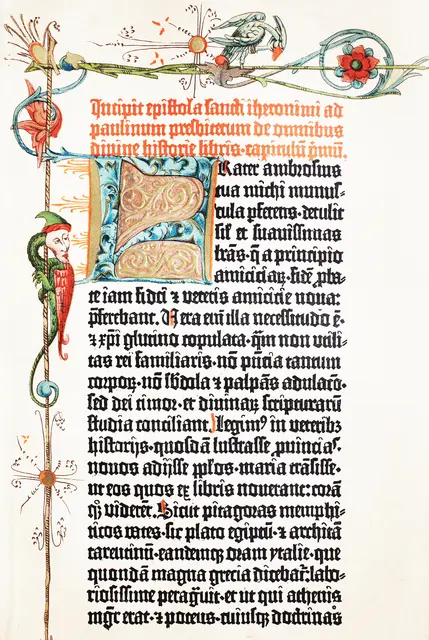 Incipit epistola sancti iheronimi ad
paulinum presbiterum de omnibus
divine historie libris. capitulū p̄mū.
Frater ambrosius
tua michi munus-
cula p̄ferens. detulit
sil̄ et suavissimas
lr̄as. q̄ a principio
amicicia⁊. fidē p̄ba-
te iam fidei ⁊ veteris amicicie nova:
p̄ferebant. Vera eni illa necessitudo ē.
⁊ xp̄i glutino copulata. q̄m non utili-
tas rei familiaris. nō p̄ncia tantum
corpoꝝ. nō s̄bdola ⁊ palpās adulacō.
sed dei timor. et divinaꝝ scripturarū
studia conciliant. Legim⁹ in veterib⁹
historijs. quosdā lustrasse p̄vincias.
novos adijsse pp̄los. maria trāsisse.
ut eos quos ex libris noverant: corā
q̄⁊ viderēt. Sicut pitagoras memphi-
ticos vates. sic plato egiptū. ⁊ architā
tarentinū. eandemq⁊ oram ytalie. que
quondā magna grecia dicebat̄: labo-
riosissime peragvit. et ut qui athenis
mgr̄ erat. ⁊ potens. cuiusq⁊ doctrinas